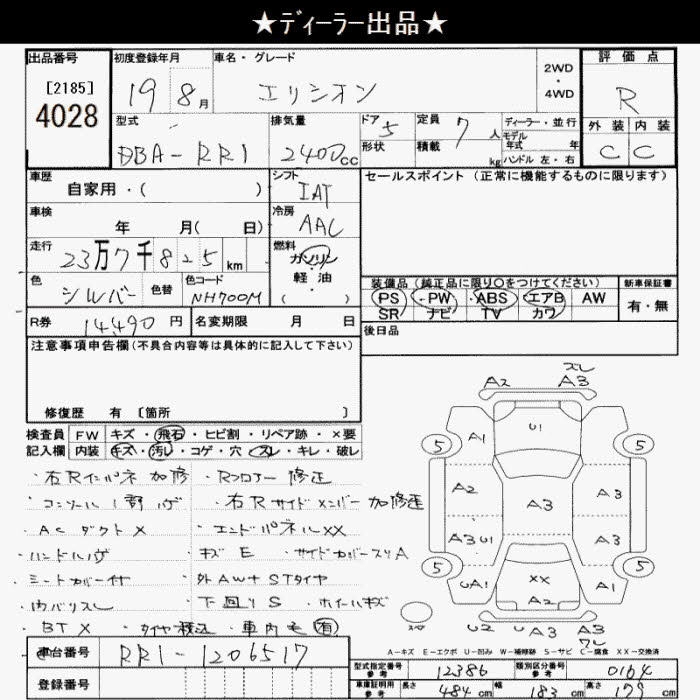 ★ディーラー出品★
出品番号
[2185]
4028
初度登録年月
19 8月
車名・グレード
エリシオン
2WD
・
4WD
評価点
R
外装 内装
C C
型式
DBA-RR1
排気量
2400cc
ドア 5
形状
定員 7人
積載 kg
ディーラー・並行
モデル
年式 年
ハンドル 左・右
車歴
自家用・( )
シフト
IAT
セールスポイント (正常に機能するものに限ります)
車検
年 月( 日)
冷房
AAC
走行
23万7千825km
燃料
ガソリン
軽・油
・( )
色
シルバー
色替
色コード
NH700M
装備品 (純正品に限り○をつけてください)
PS ・PW・ ABS・ エアB AW
SR ナビ TV カワ
新車保証書
有・無
R券 14,490円
名変期限 月 日
後日品
注意事項申告欄(不具合内容等は具体的に記入して下さい)
修復歴 有 [箇所 ]
検査員
記入欄
FW キズ・飛石・ヒビ割・リペア跡・×要
内装 キズ・汚レ・コゲ・穴・スレ・キレ・破レ
・右Rインパネ加修 ・Rフロアー修正
・コンソール1部ハゲ ・右Rサイドメンバー加修正
・ACダクト× ・エンドパネル××
・ハンドルハゲ ・キズE ・サイドカバースリA
・シートカバー付 ・外AW+STタイヤ
・内バリスレ ・下回りS ・ホイールキズ
・BT× ・タイヤ積込 ・車内毛(有)
スレ
A2 A3
A1 U1
5 5
A2 A3 A3
A3 U1 A3
5 5
UA1 ×× A1
A2
U2 U A3 A3
ワレ
A-キズ E-エクボ U-凹み W-補修跡 S-サビ C-腐食 XX-交換済
車台番号
RR1-1206517
登録番号
型式指定番号
参考
12386
類別区分番号
参考
0164
車庫証明用
参考
長さ 484cm 幅 183cm 高さ 179cm